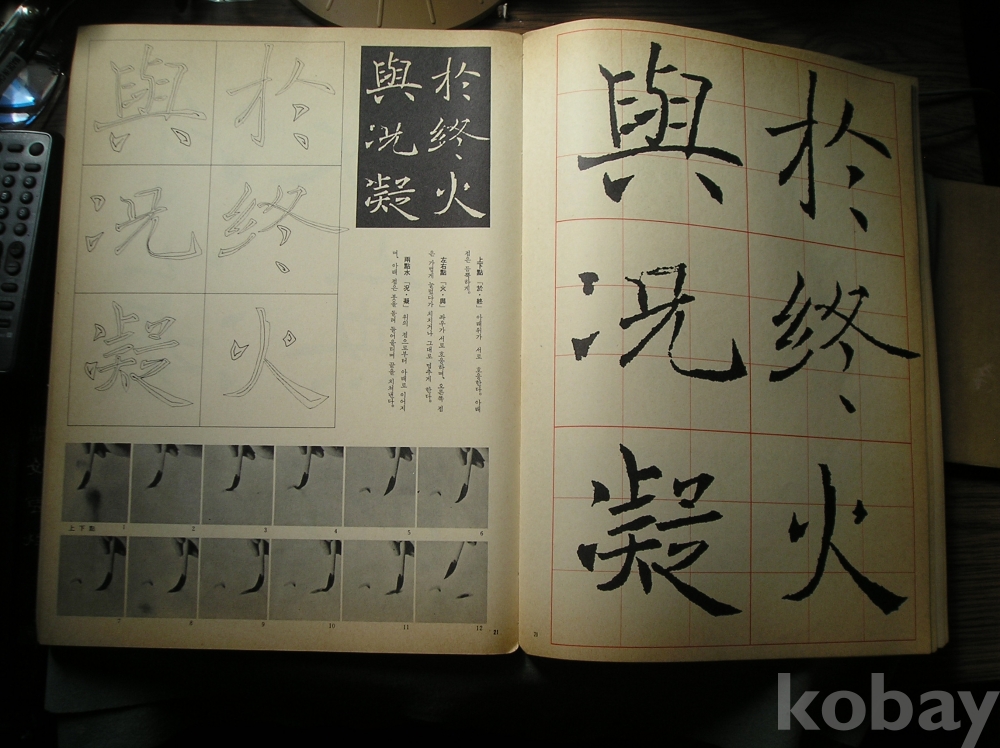 於終火
與況凝
於終火
與況凝
上下點「於·終」 아래위가 서로 호응한다. 아래
점은
左右點「火·與」 좌우가 서로 호응하며, 오른쪽 점
은 가볍게 눌렀다가 그대로 멈추게 한다.
兩點水「況·凝」 위의 점으로부터 아래로 이어지
며, 아래 점은 붓을 끝을
上下點 1 2 3 4 5 6
7 8 9 10 11 12
21
於終火
與況凝
kobay